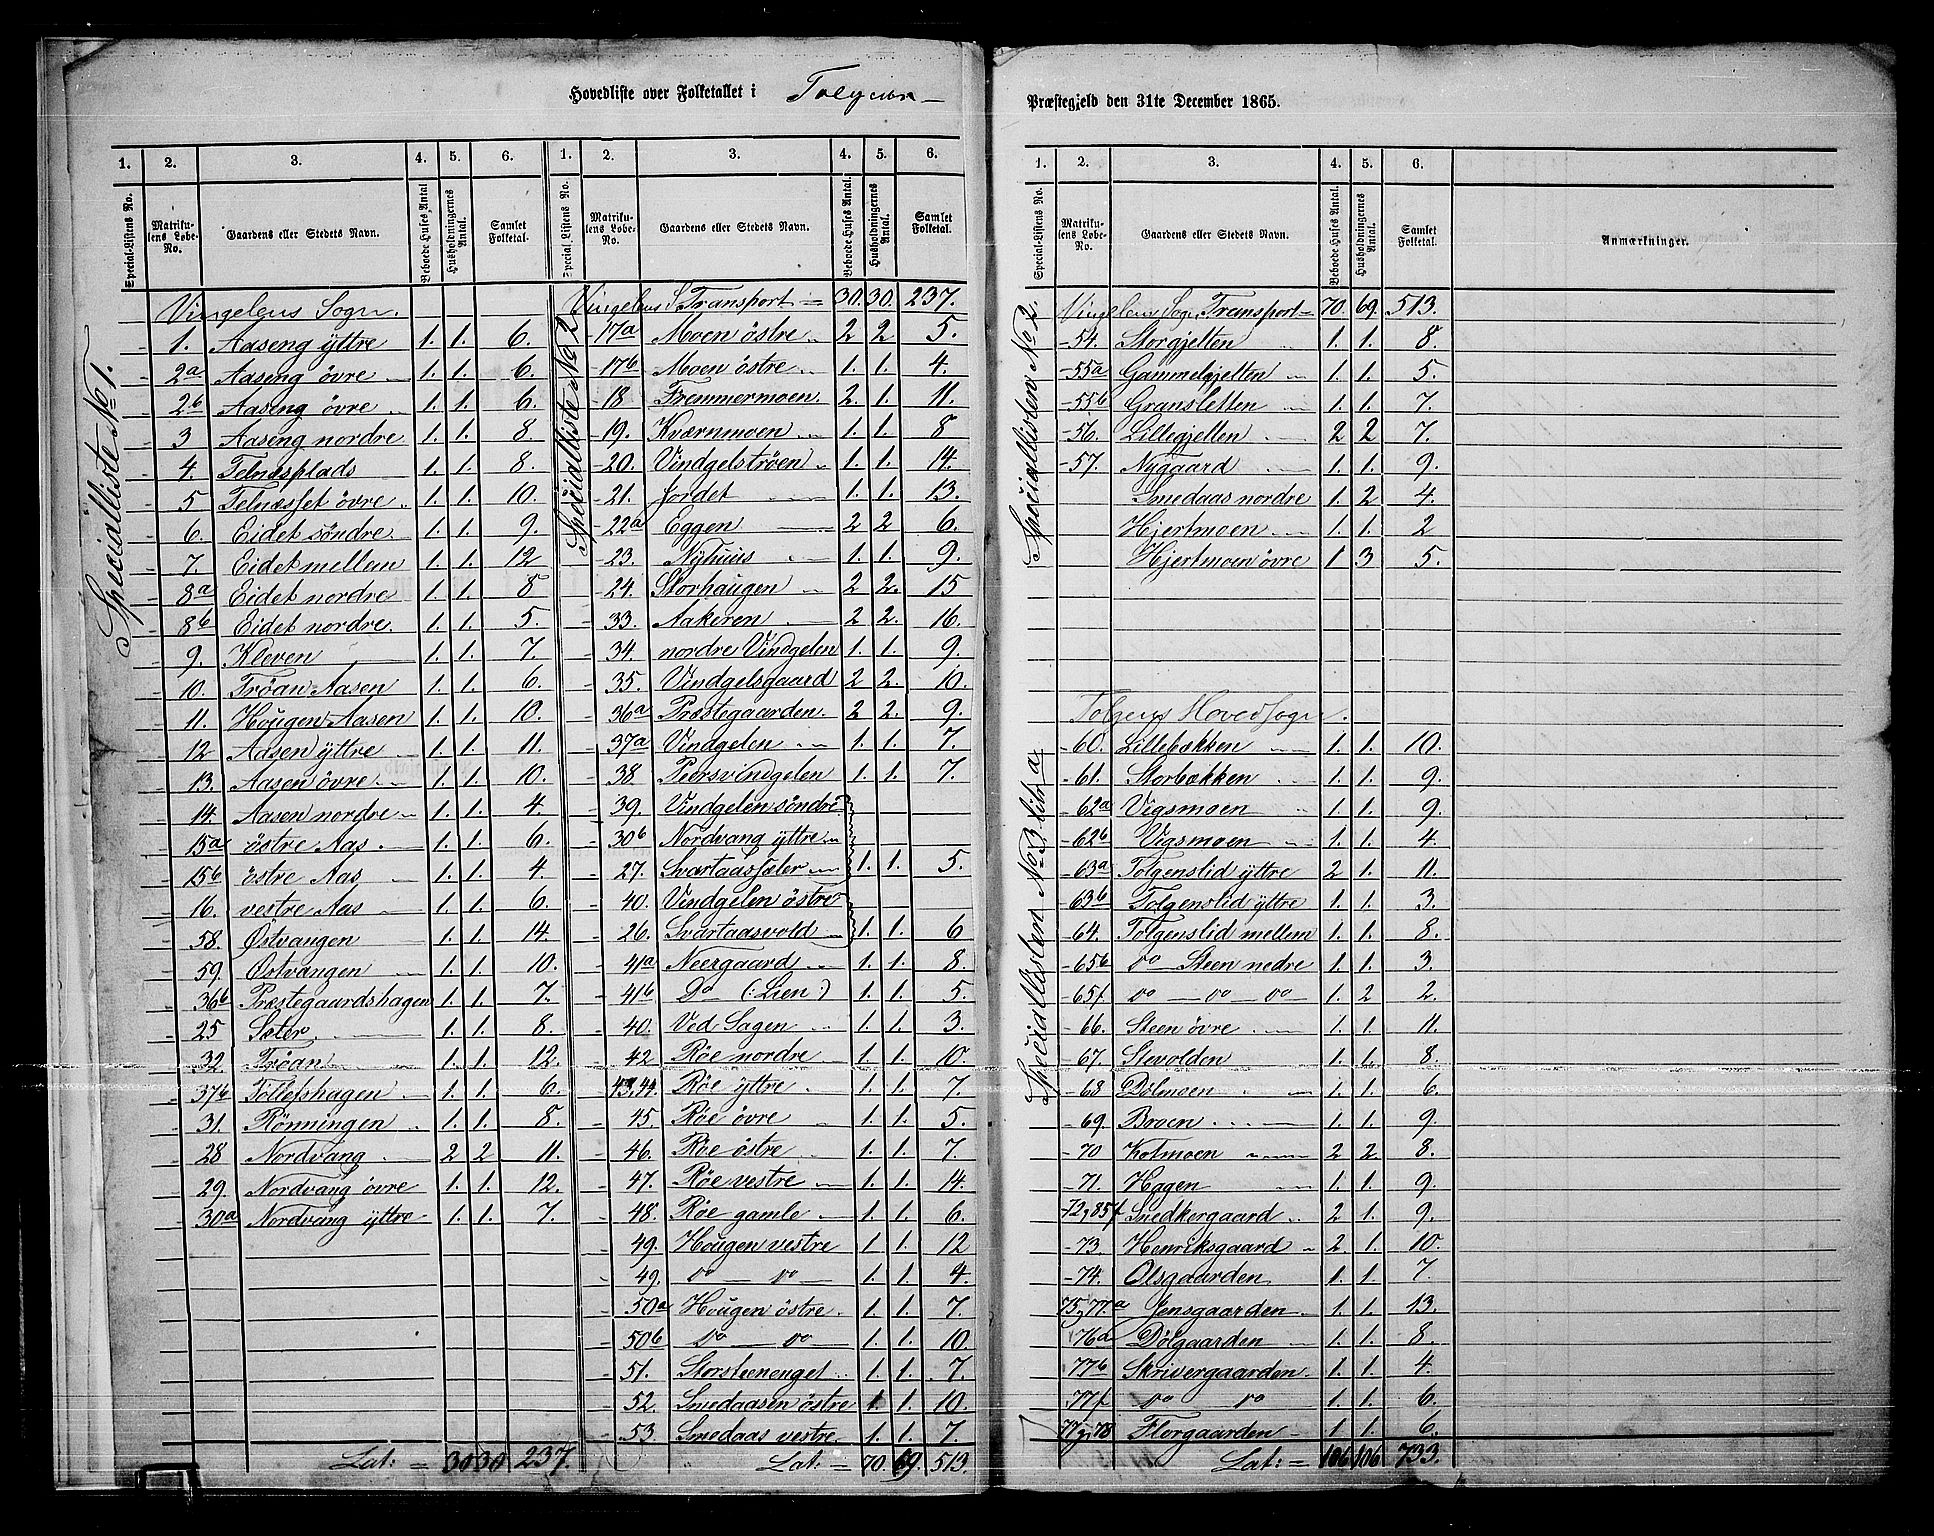 Hovedliste over Folketallet i Tolgens
Præstegjeld den 31te December 1865.
1. 2. 3. 4. 5. 6. 1. 2. 3. 4. 5. 6.
Special-Listens No. Matrikulens Løbe-No. Gaardens eller Stedets Navn. Beboede Huses Antal. Husholdningernes Antal. Samlet Folketal. Special-Listens No. Matrikulens Løbe-No. Gaardens eller Stedets Navn. Beboede Huses Antal. Husholdningernes Antal. Samlet Folketal.
Specialliste No 1.
Vingelens Sogn.
1. Aaseng yttre 1. 1. 6.
2a Aaseng övre 1. 1. 6.
2b Aaseng övre 1. 1. 6.
3 Aaseng nordre 1. 1. 8
4. Telnæsplads 1. 1. 8.
5 Telnæsset övre 1. 1. 10.
6. Eidet söndre 1. 1. 9.
7. Eidet mellem 1. 1. 12
8a Eidet nordre 1. 1. 8
8b Eidet nordre. 1. 1. 5.
9. Kleven 1. 1. 7.
10. Tröan Aasen 1. 1. 6.
11. Hougen Aasen 1. 1. 10.
12 Aasen yttre 1. 1. 11.
13. Aasen övre 1. 1. 10.
14. Aasen nordre 1. 1. 4
15a östre Aas 1. 1. 6.
15b östre Aas 1. 1. 4
16. vestre Aas 1. 1. 6.
58. Östvangen 1. 1. 14.
59. Östvangen 1. 1. 10.
36b Præstegaardshagen 1. 1. 7.
25 Sæter 1. 1. 8.
32 Tröan 1. 1. 12.
37b Tollefshagen 1. 1. 6.
31. Rönningen 1. 1. 8.
28 Nordvang 2 2 11.
29. Nordvang övre 1. 1. 12.
30a Nordvang yttre 1. 1. 7.
Lat: = 30 30 237.
Specialliste No 2
Vingelens S. Transport = 30. 30. 237.
17a Moen östre 2 2 5.
17b Moen östre 1. 1. 4.
18 Fremmermoen. 2. 1. 11.
19. Kværnmoen 1. 1. 8
20. Vindgelströen 1. 1. 14.
21. Jordet 1. 1. 13.
22a Eggen 2 2 6.
23. Nÿhuus 1. 1. 9.
24. Storhaugen 2 2. 15
33. Aakeren 2 2. 16.
34. nordre Vindgelen 1. 1. 9.
35. Vindgelsgaard 2 2. 10.
36a Præstegaarden. 2 2. 9.
37a Vindgelen 1. 1. 7.
38 Peersvindgelen 1. 1. 7.
39. Vindgelen söndre
30b Nordvang yttre
27. Svartaassæter 1. 1. 5.
40. Vindgelen östre
26. Svartaasvold 1. 1. 6
41a Neergaard 1. 1. 8.
41b Do (: Lien :) 1. 1. 5.
40. Ved Sagen 1. 1. 3.
42 Röe nordre 1. 1. 10.
43,44 Röe yttre 1. 1. 7.
45 Röe övre 1. 1. 5.
46. Röe östre 1. 1. 7.
47. Röe vestre 1. 1. 14.
48. Röe gamle 1. 1. 6.
49. Hougen vestre 1. 1. 12
49. do — do 1. 1. 4.
50a Hougen östre 1. 1. 7.
50b do — do 1. 1. 10.
51. Storsteenenget 1. 1. 7.
52. Smedaasen östre 1. 1. 10.
53. Smedaas vestre 1. 1. 7.
Lat: = 70. 69. 513.
1. 2. 3. 4. 5. 6.
Special-Listens No. Matrikulens Løbe-No. Gaardens eller Stedets Navn. Beboede Huses Antal. Husholdningernes Antal. Samlet Folketal. Anmærkninger.
Speciallisten No 2.
Vingelens Sogn Transport = 70. 69. 513.
54. Storgjelten 1. 1. 8.
55a Gammelgjelten 1. 1. 5.
55b Gransletten 1. 1. 7.
56. Lillegjelten 2 2 7.
57. Nygaard 1. 1. 9.
Smedaas nordre 1. 2 4.
Hjertmoen 1. 1. 2
Hjertmoen övre 1 3 5.
Speciallisten No 3 litr a.
Tolgens Hovedsogn.
60. Lillebækken 1. 1. 10.
61. Storbækken 1. 1. 9.
62a Vigsmoen 1. 1. 9.
62b Vigsmoen 1. 1. 4.
63a Tolgenslid yttre 2 1. 11.
63b Tolgenslid yttre 1. 1. 3.
64. Tolgenslid mellem 1. 1. 8.
65b do — Steen nedre 1. 1. 3.
65f do — do — do 1. 2 2.
66. Steen övre 1. 1. 11.
67. Stevolden 1. 1. 8.
68 Dölmoen 1. 1. 6.
69. Broen 1. 1. 9.
70 Kotmoen 2 2 8.
71. Hagen 1. 1. 9.
72, 85f Snedkergaard 2 1. 9.
73. Henriksgaard 2. 1. 10.
74. Olsgaarden 1. 1. 7.
75, 77a Jensgaarden 1. 1. 13.
76a Dölgaarden 1. 1. 8.
77b Skrivergaarden 1. 1. 4.
77f do do 1. 1. 6.
77g, 78 Florgaarden 1. 1. 6.
Lat: = 106 106 733.